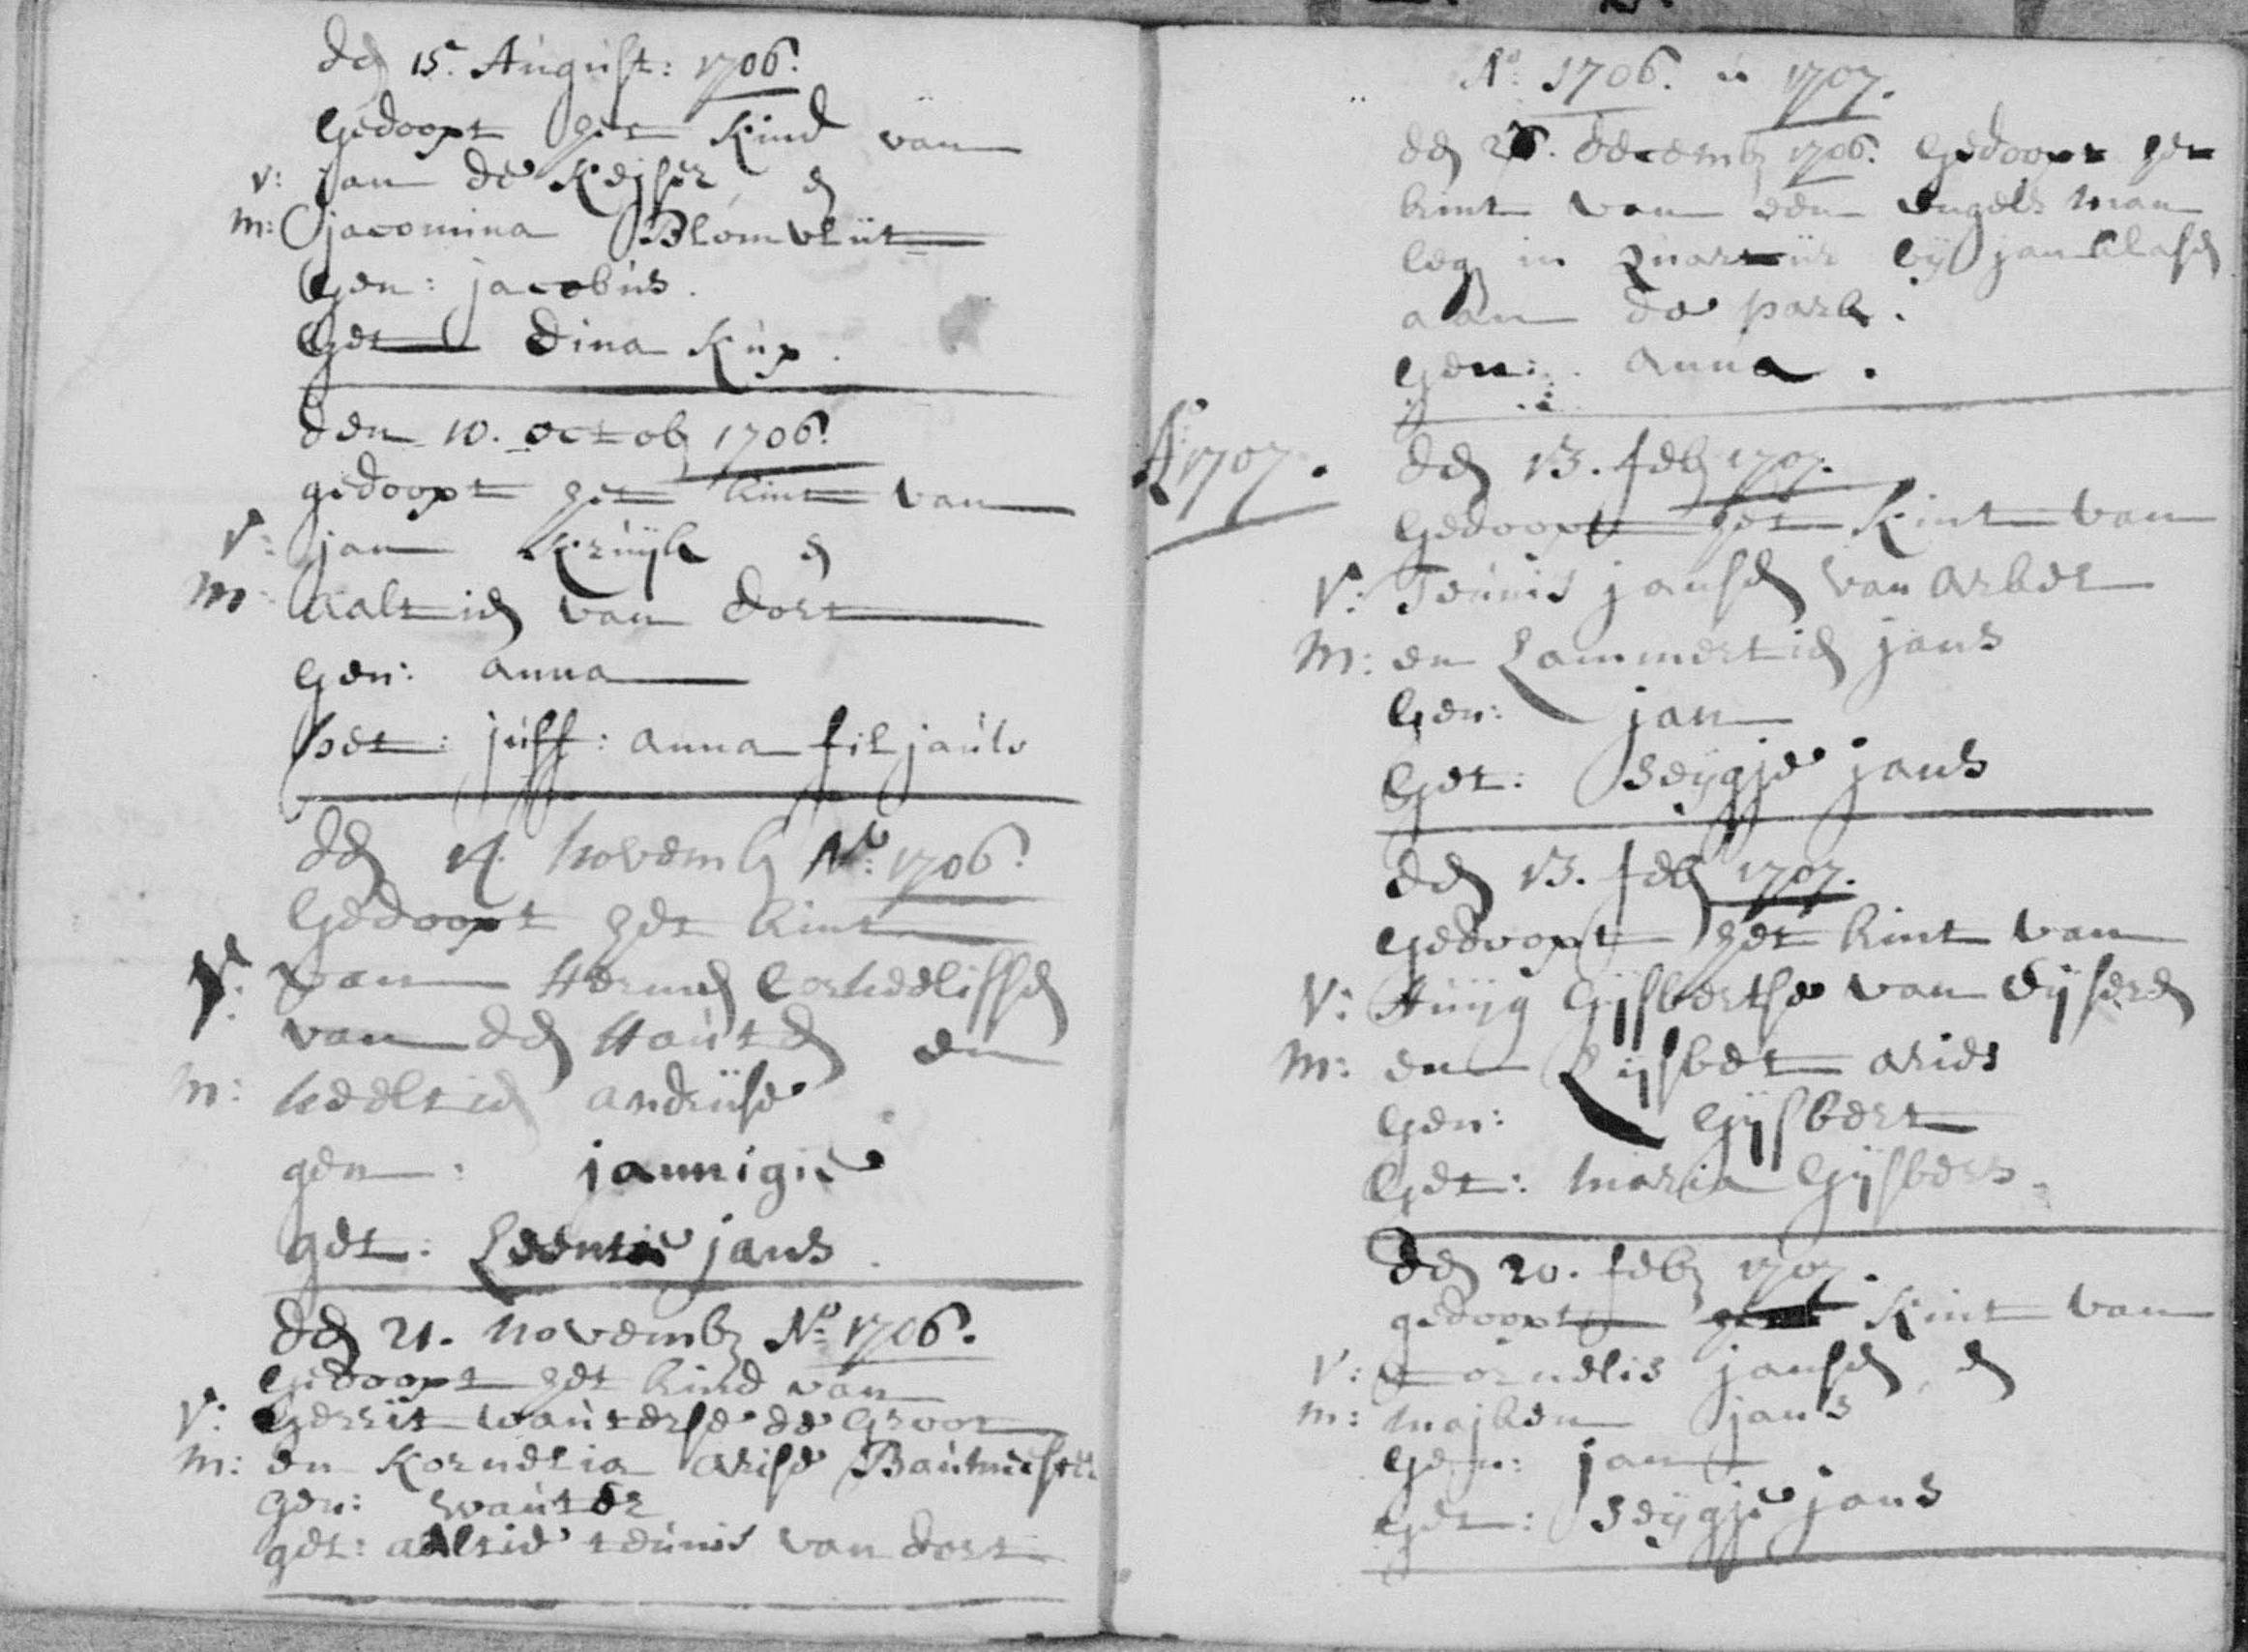 den 15. August: 1706.
Gedoopt het Kind van
v: jan de Keijser en
m: jacomina Blomvliit
Gen: jacobús.
Get Dina Kúp.
den 10. octob 1706.
gedoopt het kint van
V: jan Krúijk en
m: aaltien van dort
Gen: anna
Get: júff: anna filjaúls
den 14. novemb Ao: 1706.
Gedoopt het kint
V: van Hermen Corneelissen
van den Haúten en
m: neeltien andriise
gen: jannigie
get: Leentie jans.
den 21. novemb Ao: 1706.
Gedoopt het kind van
V: Gerrit waúterse de Groot
m: en Kornelia arise
gen: waúter
get: aeltie teúnis van dort
Ao: 1706. 1707.
den 26. decemb 1706. Gedoopt het
kint van een engels man
leg in Quartiir bij jan klasen
aan de park.
gen: anna.
Ao 1707.
den 13. feb 1707.
Gedoopt het Kint van
V: Teúnis jansen van arkel
M: en Lammertien jans
Gen: jan
Get: Seijgje jans
den 13. feb 1707.
Gedoopt het kint van
V: Húijg Gijsbertse van Eijseren
M: en Lijsbet aries
Gen: Gijsbert
Get: maria Gijsbers.
den 20. feb 1707.
gedoopt het Kint van
V: Cornelis jansen, en
m: majken jans
Gen: jan
Get: Seijgje jans